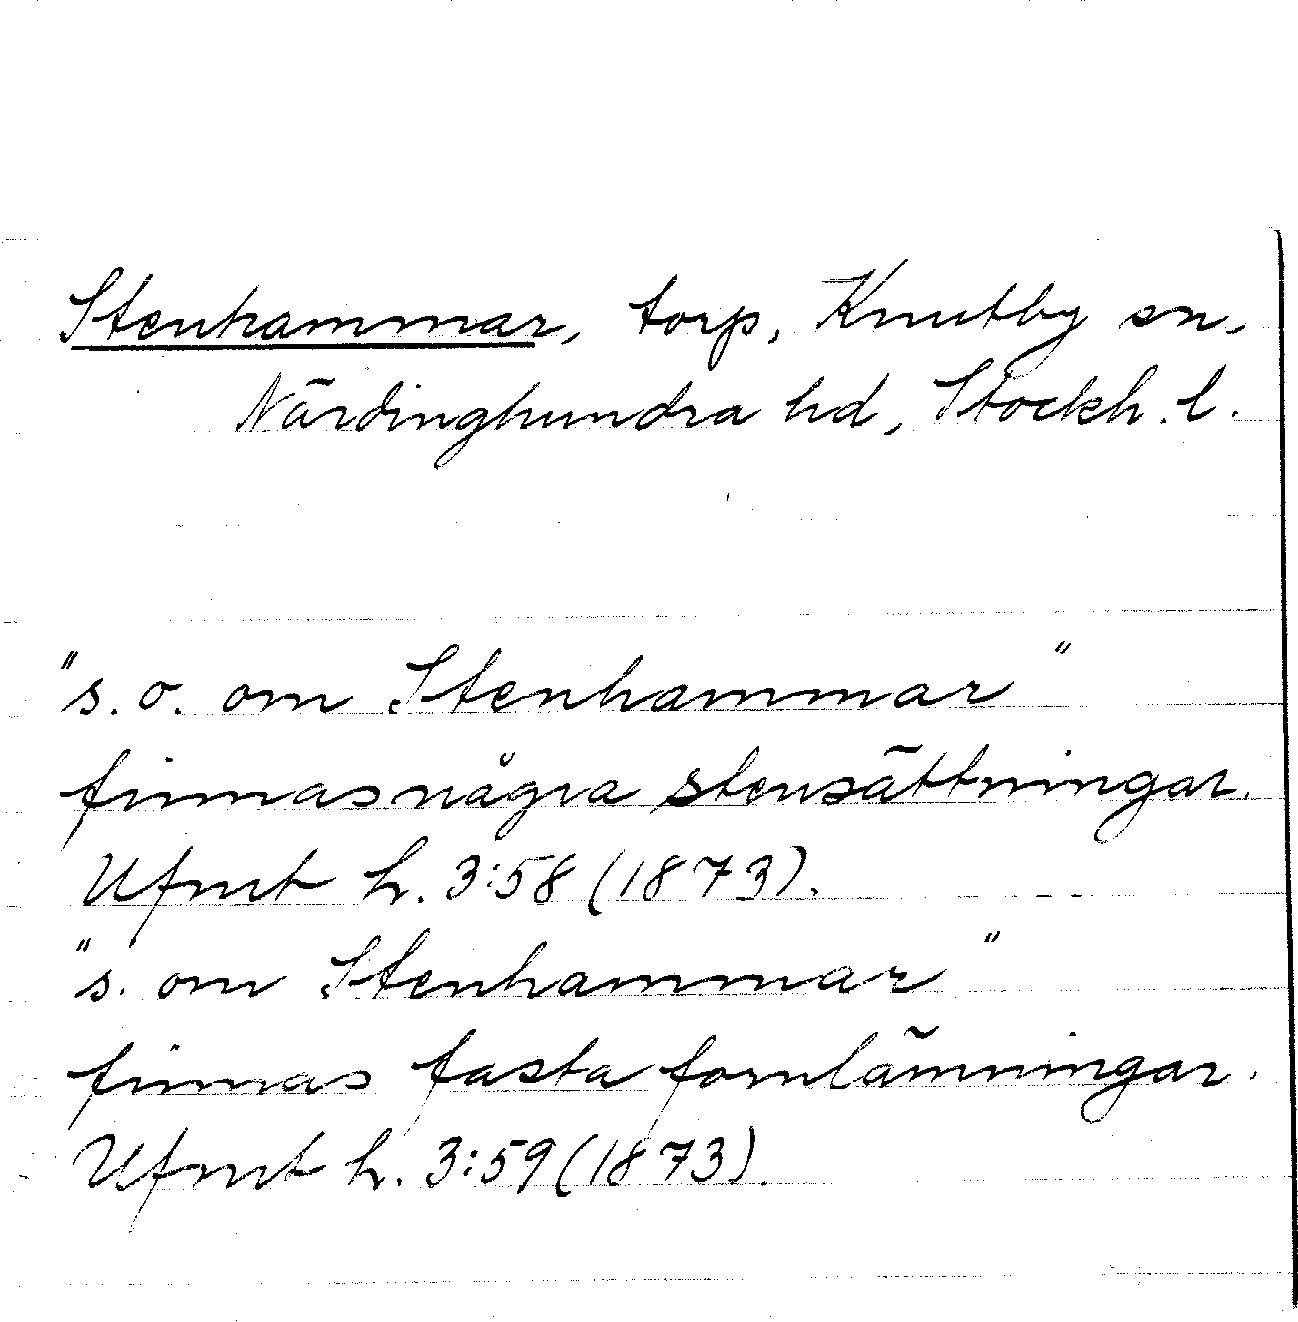 Stenhammar, torp, Knutby sn,
Närdinghundra hd, Stockh. l.
"s.o. om Stenhammar"
finnas några stensättningar.
Ufmt h. 3:58 (1873).
"s. om Stenhammar"
finnas fasta fornlämningar.
Ufmt h. 3:59 (1873).